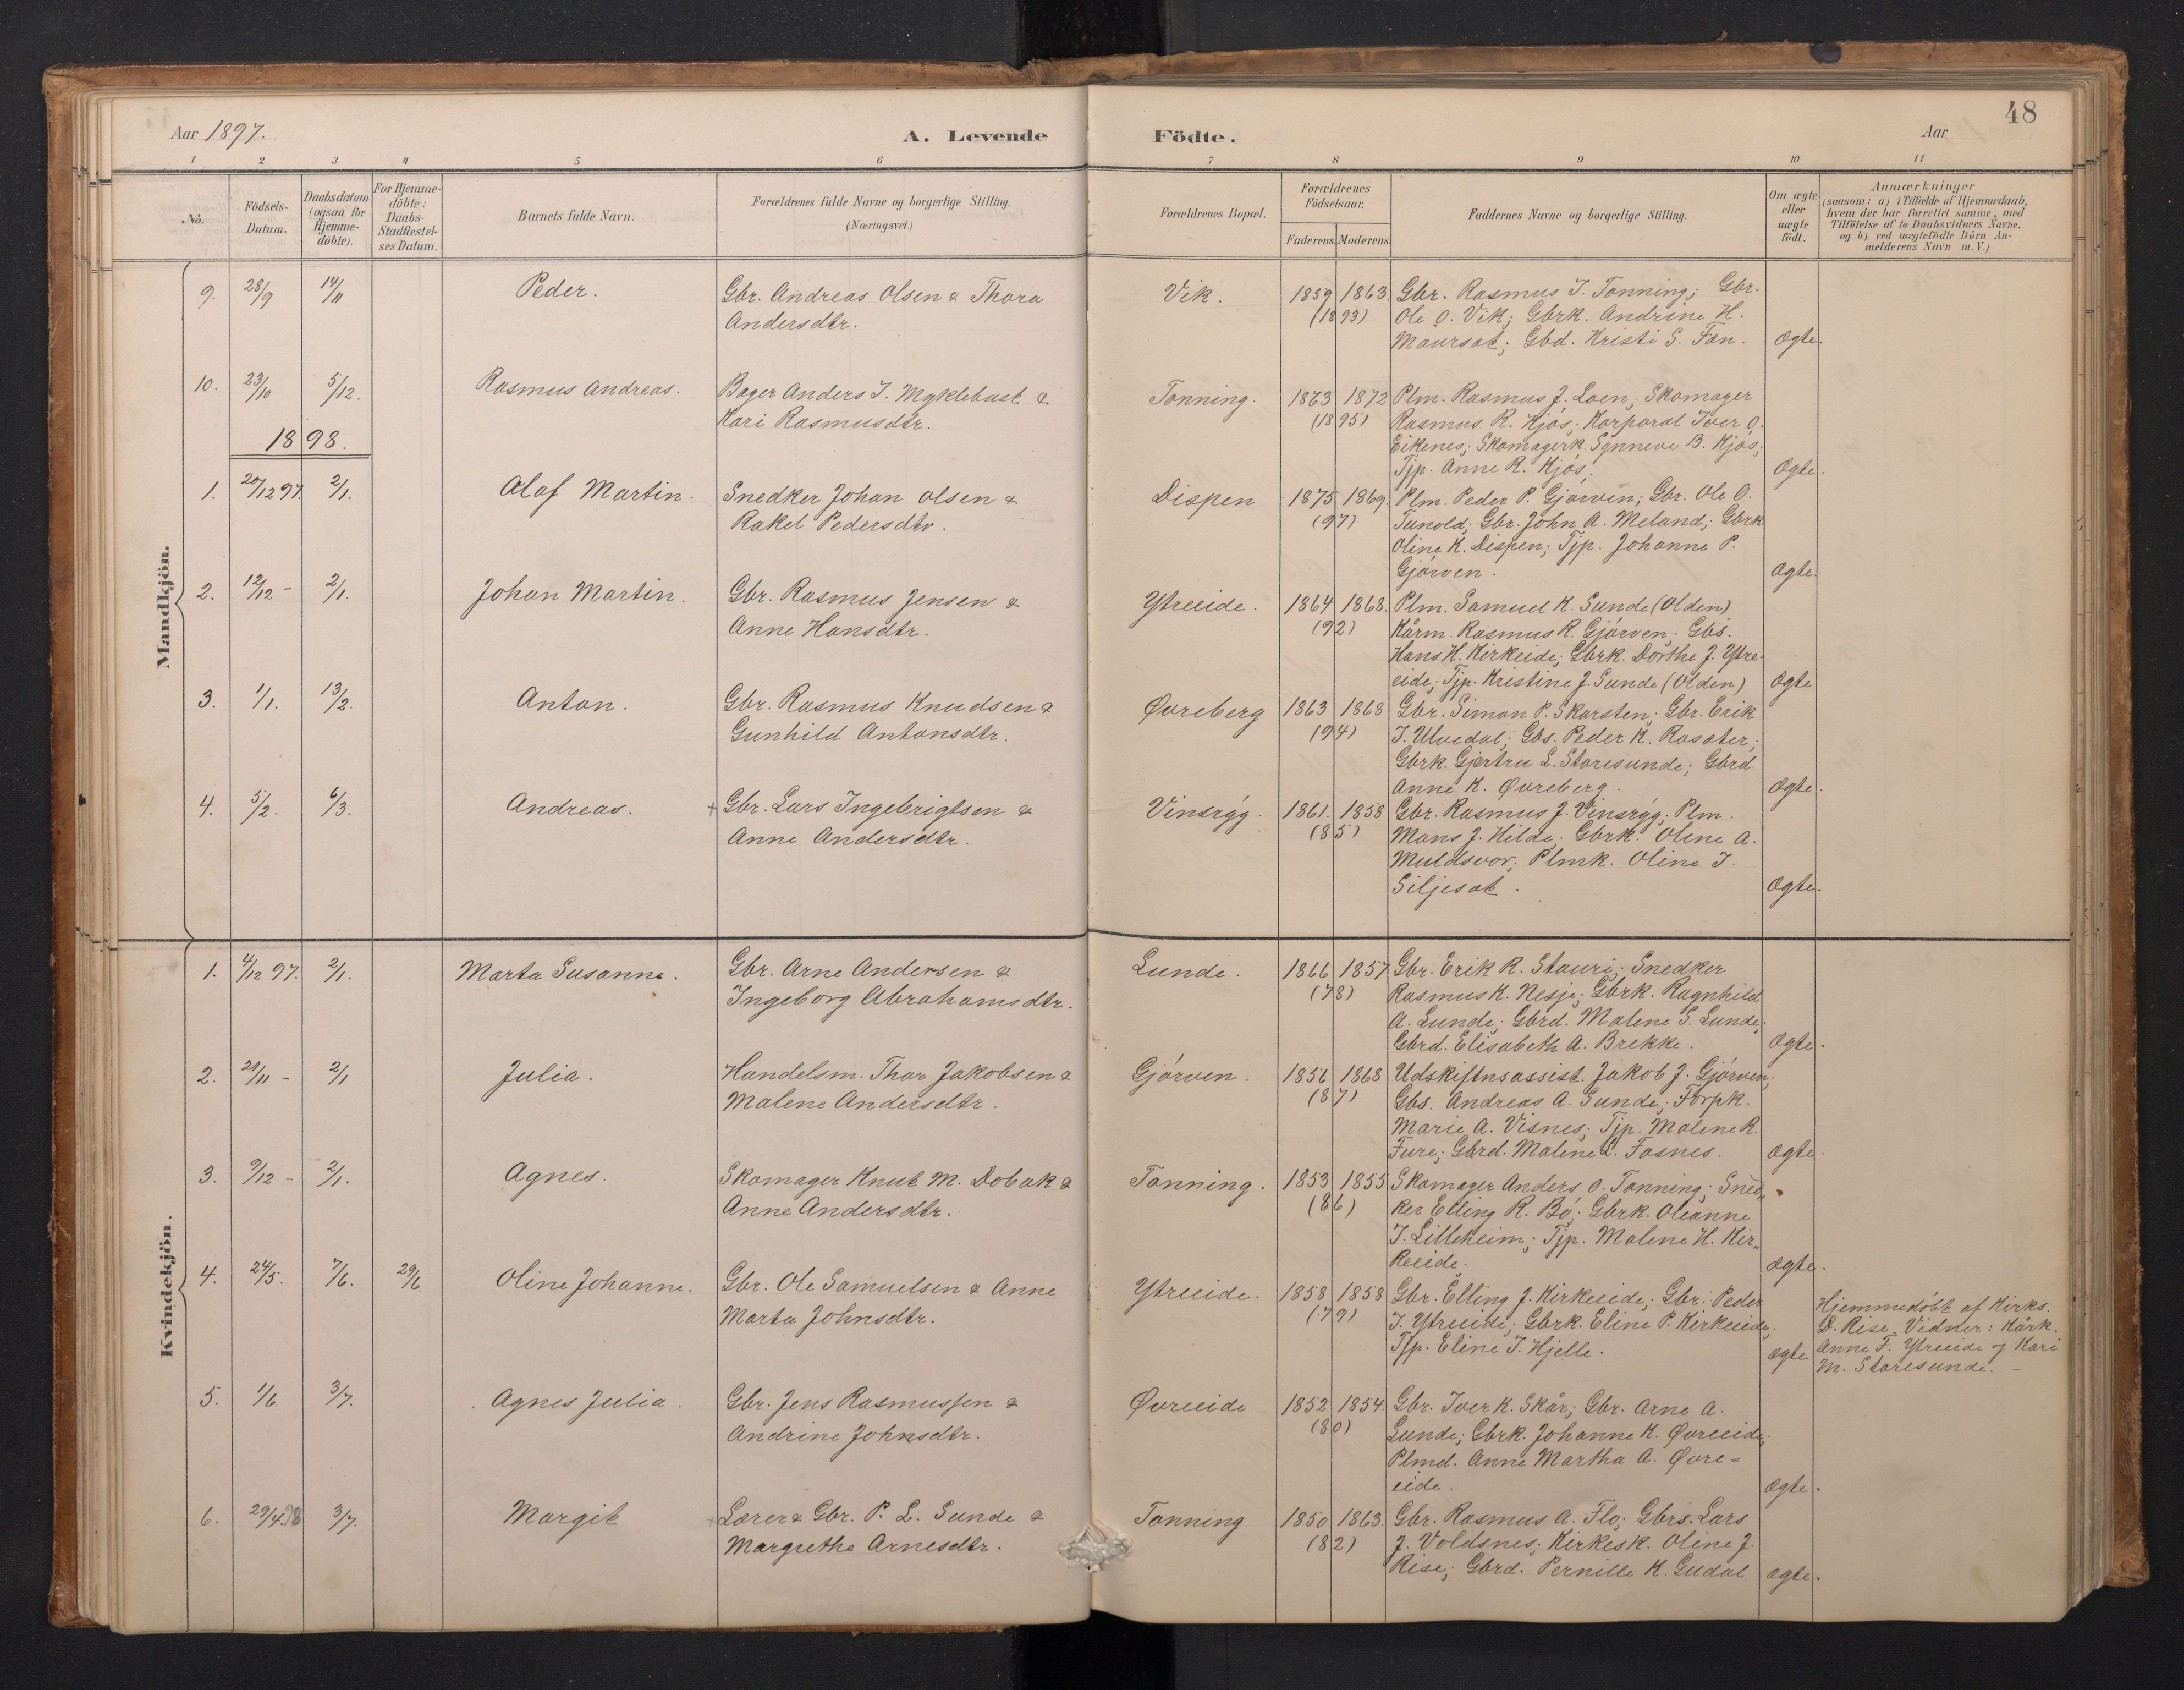 48
Aar 1897.
A. Levende Födte.
Aar
1 2 3 4 5 6 7 8 9 10 11
No.
Födsels-
Datum.
Daabsdatum
(ogsaa for
Hjemme-
döbte).
For Hjemme-
döbte:
Daabs-
Stadfæstel-
ses Datum.
Barnets fulde Navn.
Forældrenes fulde Navne og borgerlige Stilling.
(Næringsvei.)
Forældrenes Bopæl.
Forældrenes
Födselsaar.
Faderens. Moderens.
Faddernes Navne og borgerlige Stilling.
Om ægte
eller
uægte
födt.
Anmærkninger
(saasom: a) i Tilfælde af Hjemmedaab,
hvem der har forrettet samme, med
Tilföielse af to Daabsvidners Navne.
og b) ved uægtefödte Börn An-
melderens Navn m. V.)
Mandkjön.
9. 28/9 14/11 Peder. Gbr. Andreas Olsen & Thora
Andersdtr.
Vik. 1859 1863
(1893)
Gbr. Rasmus J. Tonning; Gbr.
Ole O. Vik; Gbrk. Andrine H.
Maursæt; Gbd. Kristi S. Fan.
Ægte.
10. 23/10 5/12. Rasmus Andreas. Bager Anders J. Myklebust &
Kari Rasmusdtr.
Tonning. 1863 1872
(1895)
Plm. Rasmus J. Loen; Skomager
Rasmus R. Kjós; Korporal Iver O.
Eikenes; Skomagerk. Synneve B. Kjós;
Tjp. Anne R. Kjós.
Ægte.
1898.
1. 20/12 97. 2/1. Olaf Martin. Snedker Johan Olsen &
Rakel Pedersdtr.
Dispen 1875 1869.
(97)
Plm. Peder P. Gjórven; Gbr. Ole O.
Tunold; Gbr. John A. Meland; Gbrk
Oline K. Dispen; Tjp. Johanne P.
Gjórven.
Ægte.
2. 12/12 - 2/1. Johan Martin. Gbr. Rasmus Jensen &
Anne Hansdtr.
Ytreeide. 1864 1868.
(92)
Plm. Samuel K. Sunde (Olden)
Kårm. Rasmus R. Gjórven; Gbs.
Hans H. Kirkeide; Gbrk. Dorthe J. Ytre-
eide; Tjp. Kristine J. Sunde (Olden)
Ægte
3. 1/1. 13/2. Anton. Gbr. Rasmus Knudsen &
Gunhild Antonsdtr.
Øvreberg 1863 1868
(94)
Gbr. Simon P. Skarsten; Gbr. Erik
J. Ulvedal; Gbs. Peder K. Rasæter;
Gbrk. Gjertru L. Storesunde; Gbrd
Anne K. Øvreberg.
Ægte.
4. 5/2. 6/3. Andreas. + Gbr. Lars Ingebrigtsen &
Anne Andersdtr.
Vinsrýg. 1861. 1858
(85)
Gbr. Rasmus J. Vinsrýg; Plm.
Mons J. Hilde; Gbrk. Oline A.
Muldsvor; Plmk. Oline J.
Siljesæt.
Ægte.
Kvindekjön.
1. 4/12 97. 2/1. Marta Susanne. Gbr. Arne Andersen &
Ingeborg Abrahamsdtr.
Lunde. 1866 1857
(78)
Gbr. Erik R. Stauri; Snedker
Rasmus K. Nesje; Gbrk. Ragnhild
A. Lunde; Gbrd. Malene S. Lunde;
Gbrd. Elisabeth A. Brekke.
Ægte.
2. 21/11 - 2/1 Julia. Handelsm. Thor Jakobsen &
Malene Andersdtr.
Gjórven. 1856 1868
(87)
Udskiftnsassist. Jakob J. Gjórven;
Gbs. Andreas A. Sunde; Forpk.
Marie A. Visnes; Tjp. Malene R.
Fure; Gbrd. Malene L. Fosnes.
Ægte.
3. 9/12 - 2/1. Agnes. Skomager Knut M. Dobak &
Anne Andersdtr.
Tonning. 1853 1855
(86)
Skomager Anders O. Tonning; Sned„
ker Elling R. Bó; Gbrk. Oleanne
J. Lilleheim; Tjp. Malene H. Kir„
keeide.
Ægte.
4. 24/5. 7/6. 29/6 Oline Johanne. Gbr. Ole Samuelsen & Anne
Marta Johnsdtr.
Ytreeide. 1858 1858
(79)
Gbr. Elling J. Kirkeeide; Gbr. Peder
J. Ytreeide; Gbrk. Eline P. Kirkeeide;
Tjp. Eline J. Hjelle.
Ægte
Hjemmedóbt af Kirks.
D. Rise. Vidner: Kårk.
Anne F. Ytreeide og Kari
M. Storesunde. -
5. 1/6 3/7. Agnes Julia. Gbr. Jens Rasmussen &
Andrine Johnsdtr.
Øvreeide 1852 1854.
(80)
Gbr. Iver K. Skår; Gbr. Arne A.
Lunde; Gbrk. Johanne K. Øvreeide;
Plmd. Anne Martha A. Øvre-
eide.
Ægte.
6. 29/4.98 3/7. Margit + Lærer & Gbr. P. L. Sunde &
Margrethe Arnesdtr.
Tonning 1850 1863.
(82)
Gbr. Rasmus A. Flo; Gbrs. Lars
J. Voldsnes; Kirkesk. Oline J.
Rise; Gbrd. Pernille K. Gudal
Ægte.